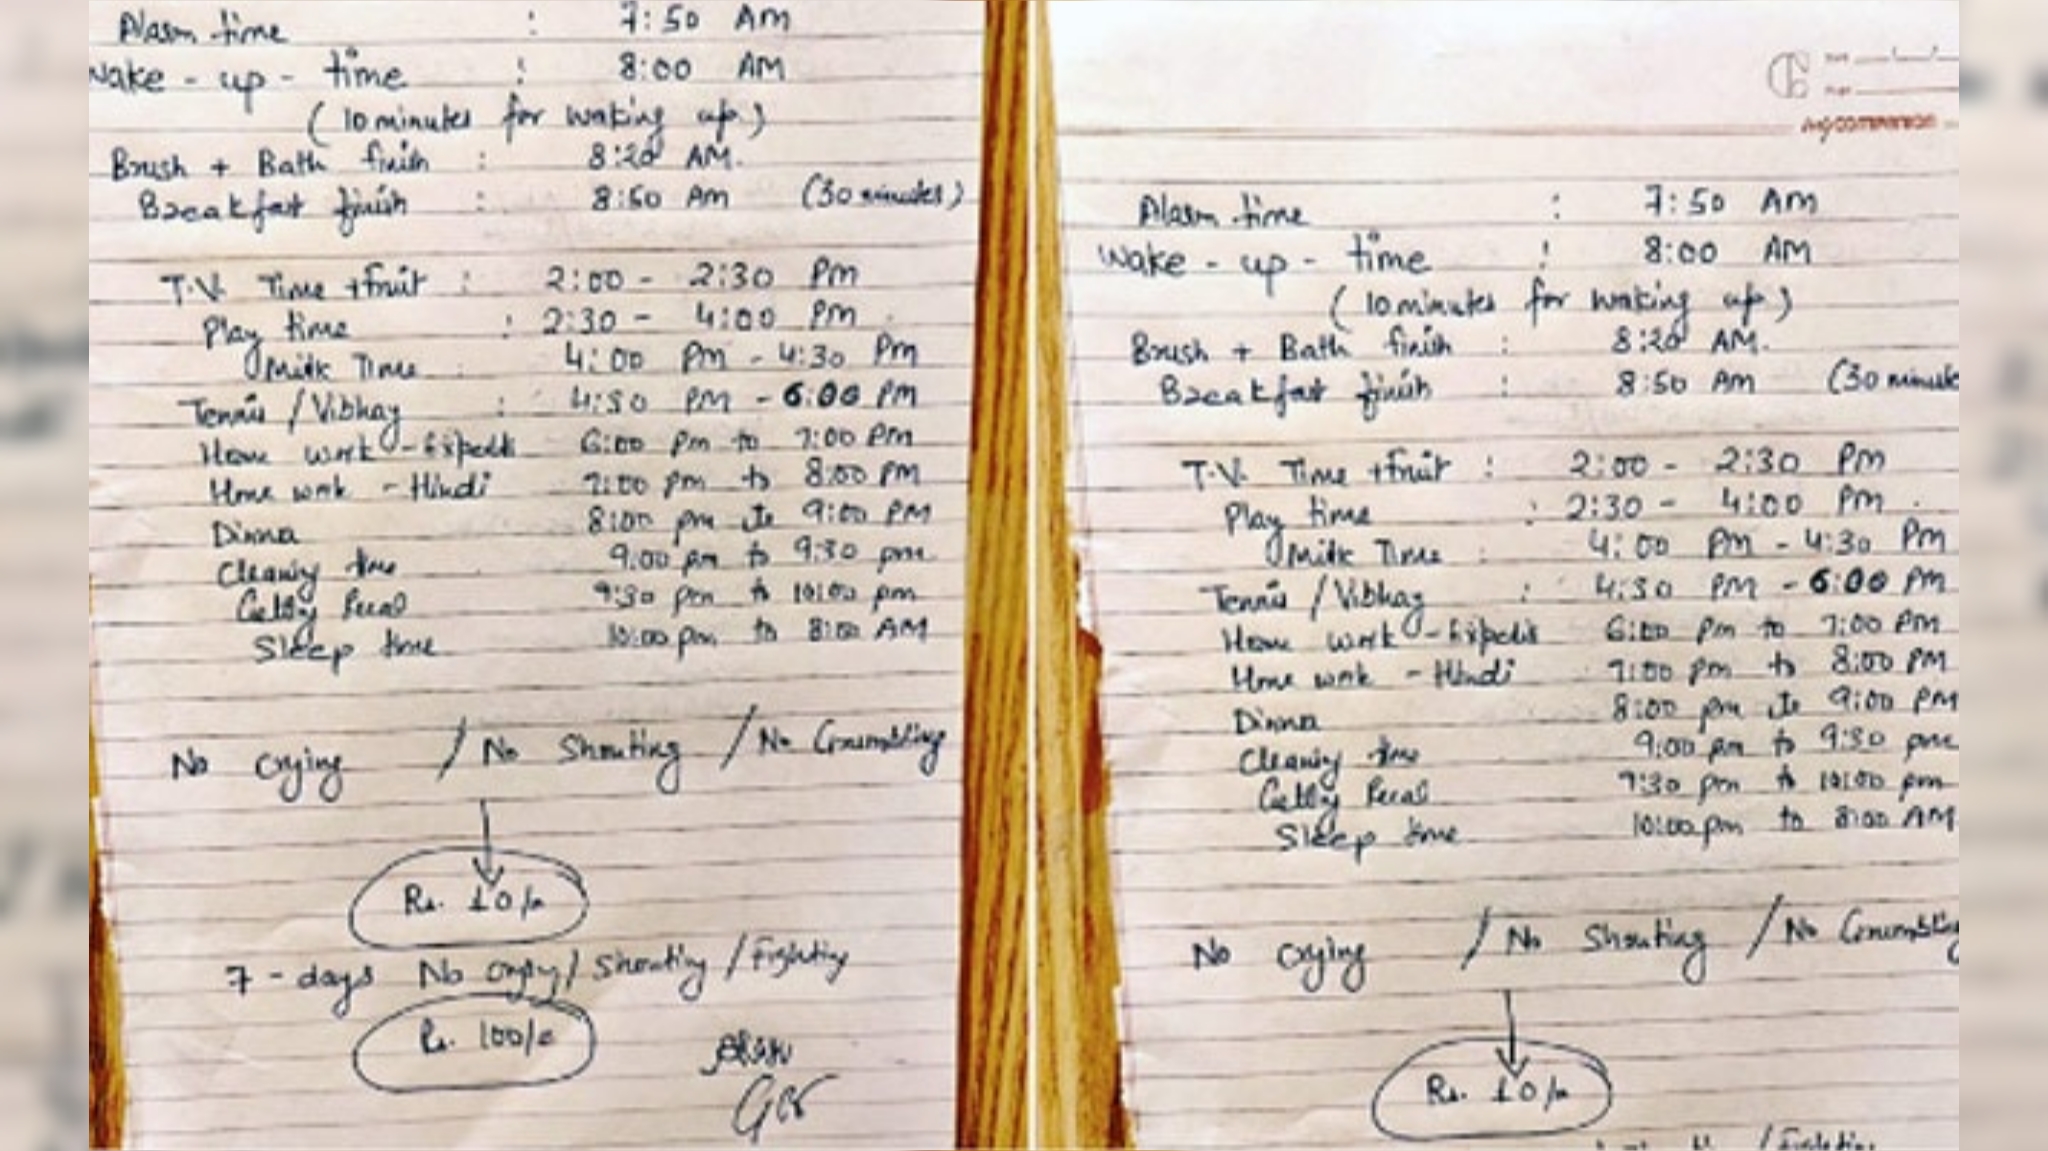 Alarm time : 7:50 AM
Wake - up - time : 8:00 AM
(10 minutes for waking up)
Brush + Bath finish : 8:20 AM.
Breakfast finish : 8:50 AM (30 minutes)
T.V. Time + fruit : 2:00 - 2:30 PM
Play time : 2:30 - 4:00 PM
Milk Time : 4:00 PM - 4:30 PM
Tennis / Vibhag : 4:30 PM - 6:00 PM
Home work - 6:00 PM to 7:00 PM
Home work - Hindi 7:00 pm to 8:00 PM
Dinner 8:00 pm to 9:00 PM
Cleaning time 9:00 pm to 9:30 pm
9:30 pm to 10:00 pm
Sleep time 10:00 pm to 8:00 AM
No Crying / No Shouting / No Grumbling
Rs. 10/-
7 - days No crying / Shouting / Fighting
Rs. 100/-
Alarm time : 7:50 AM
Wake - up - time : 8:00 AM
(10 minutes for waking up)
Brush + Bath finish : 8:20 AM.
Breakfast finish : 8:50 AM (30 minute
T.V. Time + fruit : 2:00 - 2:30 PM
Play time : 2:30 - 4:00 PM
Milk Time : 4:00 PM - 4:30 PM
Tennis / Vibhag : 4:30 PM - 6:00 PM
Home work - 6:00 PM to 7:00 PM
Home work - Hindi 7:00 pm to 8:00 PM
Dinner 8:00 pm to 9:00 PM
Cleaning time 9:00 pm to 9:30 pm
9:30 pm to 10:00 pm
Sleep time 10:00 pm to 8:00 AM
No Crying / No Shouting / No Grumbling
Rs. 10/-